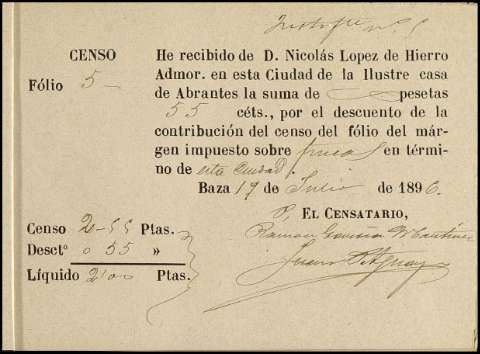 CENSO
Fólio 5
He recibido de D. Nicolás Lopez de Hierro
Admor. en esta Ciudad de la Ilustre casa
de Abrantes la suma de pesetas
55 céts., por el descuento de la
contribución del censo del fólio del már-
gen impuesto sobre en térmi-
no de esta Ciudad.
Baza 19 de Julio de 1896.
P. EL CENSATARIO,
Ramon
Juan
Censo 2-55 Ptas.
Desctº 0 55 »
Líquido 2'00 Ptas.